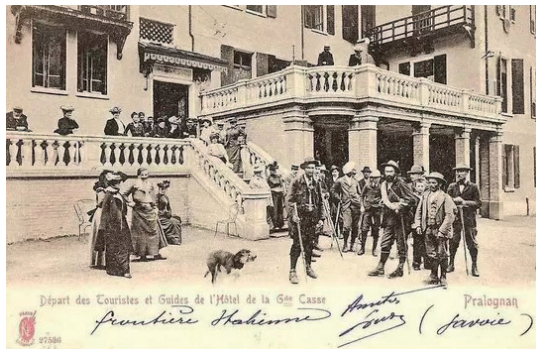 Départ des Touristes et Guides de l'Hôtel de la Gde Casse
Pralognan
frontière Italienne
(Savoie)
27586